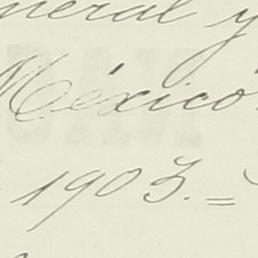 neral y
México
1903. =